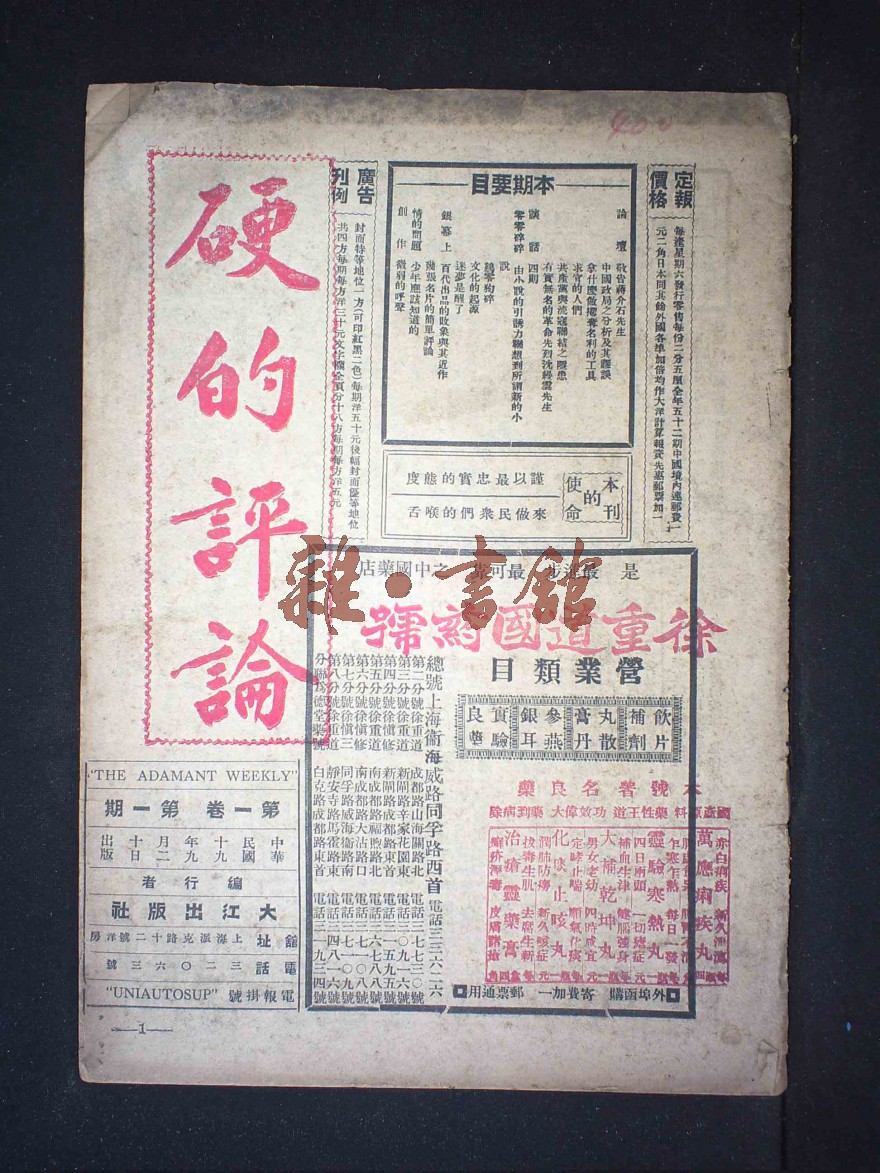 硬的評論
定報價格
每逢星期六發行零售每份二分五厘全年五十二期中國境內連郵費一
元二角日本同其餘外國各埠加倍均作大洋計算報資先惠郵票加一
本期要目
論壇
敬告蔣介石先生
中國政局之分析及其謬誤
拿什麼做攘奪名利的工具
求官的人們
共產黨與流寇聯結之隱患
有實無名的革命先烈沈縵雲先生
談話
四則
零零碎碎
由小說的引誘力聯想到所謂新的小
說
雞零狗碎
文化的起源
迷夢是醒了
銀幕上
百代出品的敗象與其近作
幾張名片的簡單評論
情的問題
少年應該知道的
創作
微弱的呼聲
廣告刊例
封面特等地位一方(可印紅黑二色)每期洋五十元後幅封面優等地位
共四方每期每方洋三十元文字欄全頁分十八方每期每方洋五元
本刊的使命
謹以最忠實的態度
來做民衆們的喉舌
是最進步最可靠之中國藥店
徐重道國葯號
營業類目
飲片
補劑
丸散
膏丹
參燕
銀耳
實驗
良藥
總號上海威海衛路同孚路西首 電話三三六二六
第二分號徐重道 成都路山海關路北 電話三一七七三〇號
第三分號徐重道 新閘路辛家花園東 電話
第四分號徐慎修 新閘路成都路東首 電話
第五分號徐重道 南成都路福煦路北 電話
第六分號徐慎修 南成都路大沽路口 電話
第七分號徐慎三 同孚路威海衛路南 電話
第八分號徐重道 靜安寺路馬霍路東 電話
分聯爲德堂藥號 白克路成都路東首 電話
本號著名良藥
國產原料 藥性王道 功效偉大 藥到病除
萬應痢疾丸
赤白痢疾
靈驗寒熱丸
乍寒乍熱 每日一發
四日兩頭 一切瘧症
大補乾坤丸
補血生津 健腦强身
男女老幼 四時咸宜
化痰止咳丸
定哮止喘 順氣化痰
潤肺防癆 新久咳症
治瘡靈藥膏
拔毒生肌 去腐生新
癬疥濕毒 皮膚諸瘡
外埠函購 寄費加一 郵票通用
"THE ADAMANT WEEKLY"
第一卷第一期
中華民國十九年十月十二日出版
編行者
大江出版社
館址 上海派克路十二號洋房
電話 三二〇六三號
電報掛號 "UNIAUTOSUP"
—1—
雜·書館